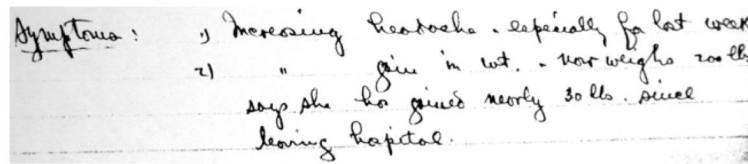 Symptoms: 1) Increasing headache - especially for last week
2) " gain in wt. - now weighs 200 lbs
says she has gained nearly 30 lbs. since
leaving hospital.